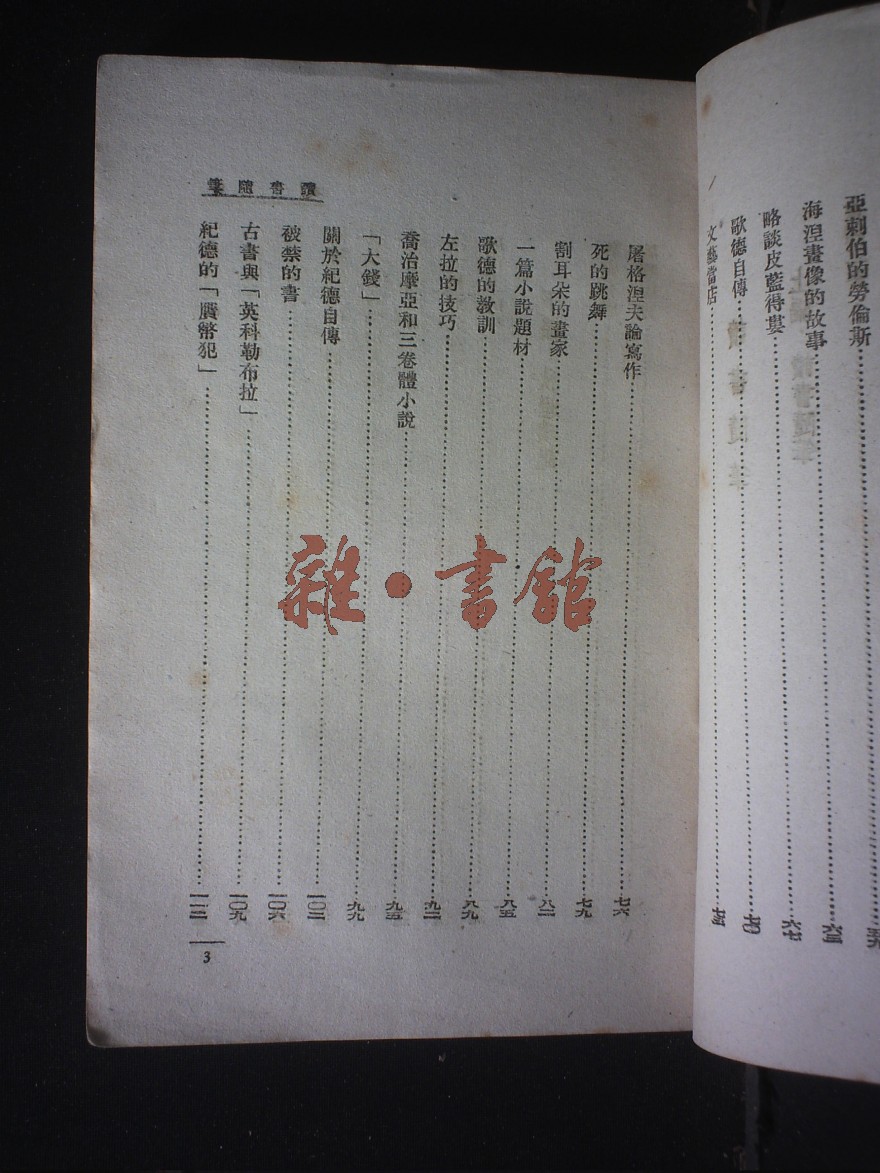 亞剌伯的勞倫斯……五九
海涅畫像的故事……六三
略談皮藍得婁……六七
歌德自傳……七〇
文藝當店……七三
讀書隨筆
屠格涅夫論寫作……七六
死的跳舞……七九
割耳朵的畫家……八二
一篇小說題材……八五
歌德的教訓……八九
左拉的技巧……九二
喬治摩亞和三卷體小說……九五
「大錢」……九九
關於紀德自傳……一〇二
被禁的書……一〇六
古書與「英科勒布拉」……一〇九
紀德的「贋幣犯」……一一二
3
雜•書館